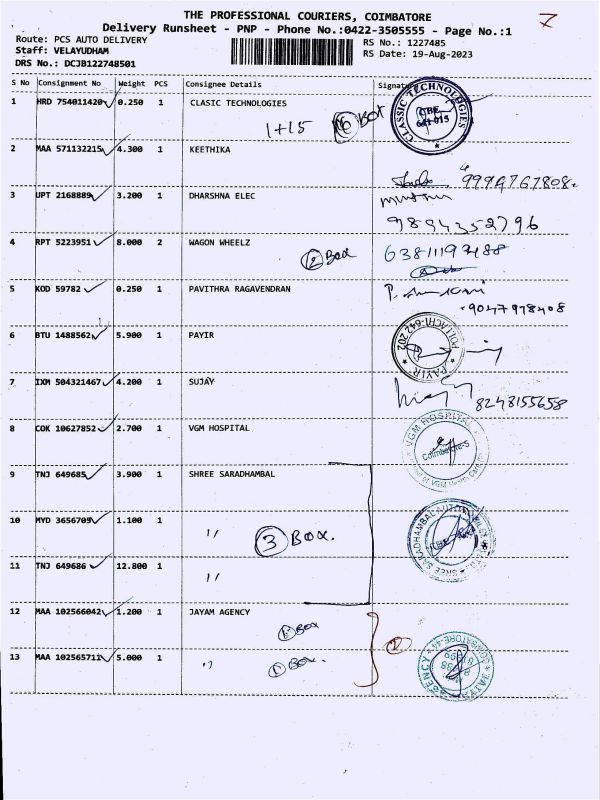 7
THE PROFESSIONAL COURIERS, COIMBATORE
Delivery Runsheet - PNP - Phone No.:0422-3505555 - Page No.:1
Route: PCS AUTO DELIVERY
RS No.: 1227485
Staff: VELAYUDHAM
RS Date: 19-Aug-2023
DRS No.: DCJB122748501
S No Consignment No Weight PCS Consignee Details Signature
1 HRD 754011420 0.250 1 CLASIC TECHNOLOGIES
CLASSIC TECHNOLOGIES CBE 641 015
1+15 16 BOX
2 MAA 571132215 4.300 1 KEETHIKA
3 UPT 2168889 3.200 1 DHARSHNA ELEC
9894352796
4 RPT 5223951 8.000 2 WAGON WHEELZ
2 Box
5 KOD 59782 0.250 1 PAVITHRA RAGAVENDRAN
9047978408
6 BTU 1488562 5.900 1 PAYIR
POLLACHI-642 202 PAYIR
7 IXM 504321467 4.200 1 SUJAY
8248155658
8 COK 10627852 2.700 1 VGM HOSPITAL
VGM HOSPITAL Coimbatore-5
9 TNJ 649685 3.900 1 SHREE SARADHAMBAL
10 MYD 3656705 1.100 1 "
3 BOX.
11 TNJ 649686 12.800 1 "
12 MAA 102566042 1.200 1 JAYAM AGENCY
1 BOX
13 MAA 102565711 5.000 1 "
1 BOX.